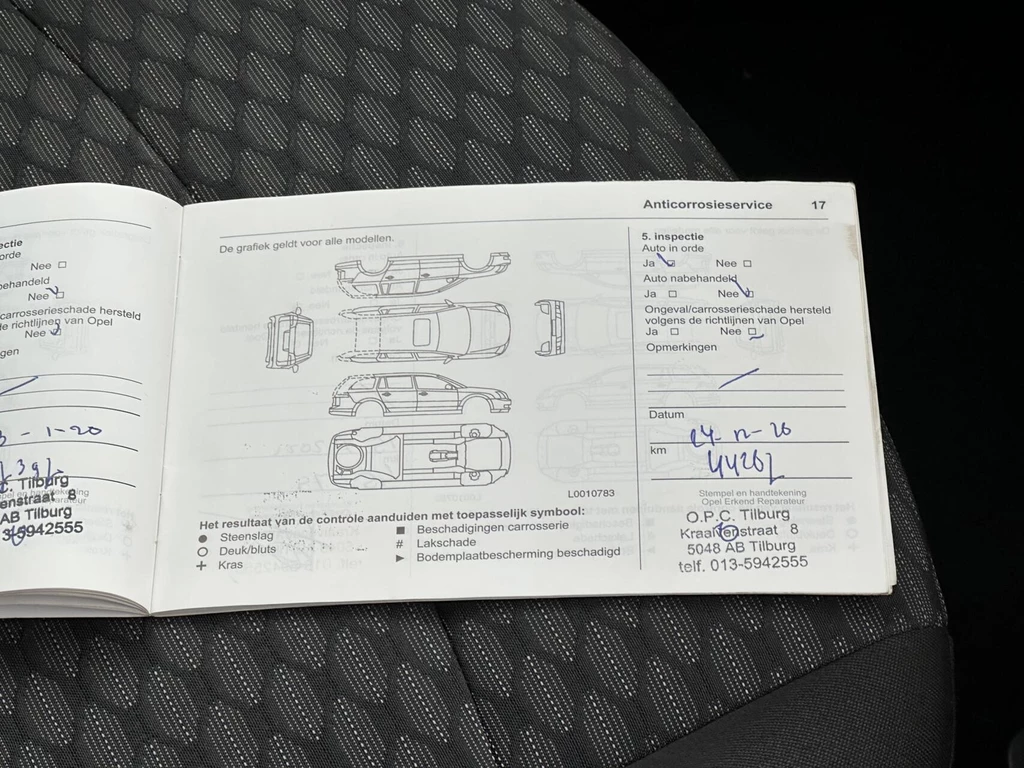 ectie
orde
Nee
behandeld
Nee
carrosserieschade hersteld
de richtlijnen van Opel
Nee
gen
- 1-20
Tilburg
enstraat 8
AB Tilburg
5942555
Anticorrosieservice 17
De grafiek geldt voor alle modellen.
L0010783
Het resultaat van de controle aanduiden met toepasselijk symbool:
● Steenslag
○ Deuk/bluts
+ Kras
■ Beschadigingen carrosserie
# Lakschade
► Bodemplaatbescherming beschadigd
5. inspectie
Auto in orde
Ja Nee
Auto nabehandeld
Ja Nee
Ongeval/carrosserieschade hersteld
volgens de richtlijnen van Opel
Ja Nee
Opmerkingen
Datum
km
Stempel en handtekening
Opel Erkend Reparateur
O.P.C. Tilburg
Kraaivenstraat 8
5048 AB Tilburg
telf. 013-5942555